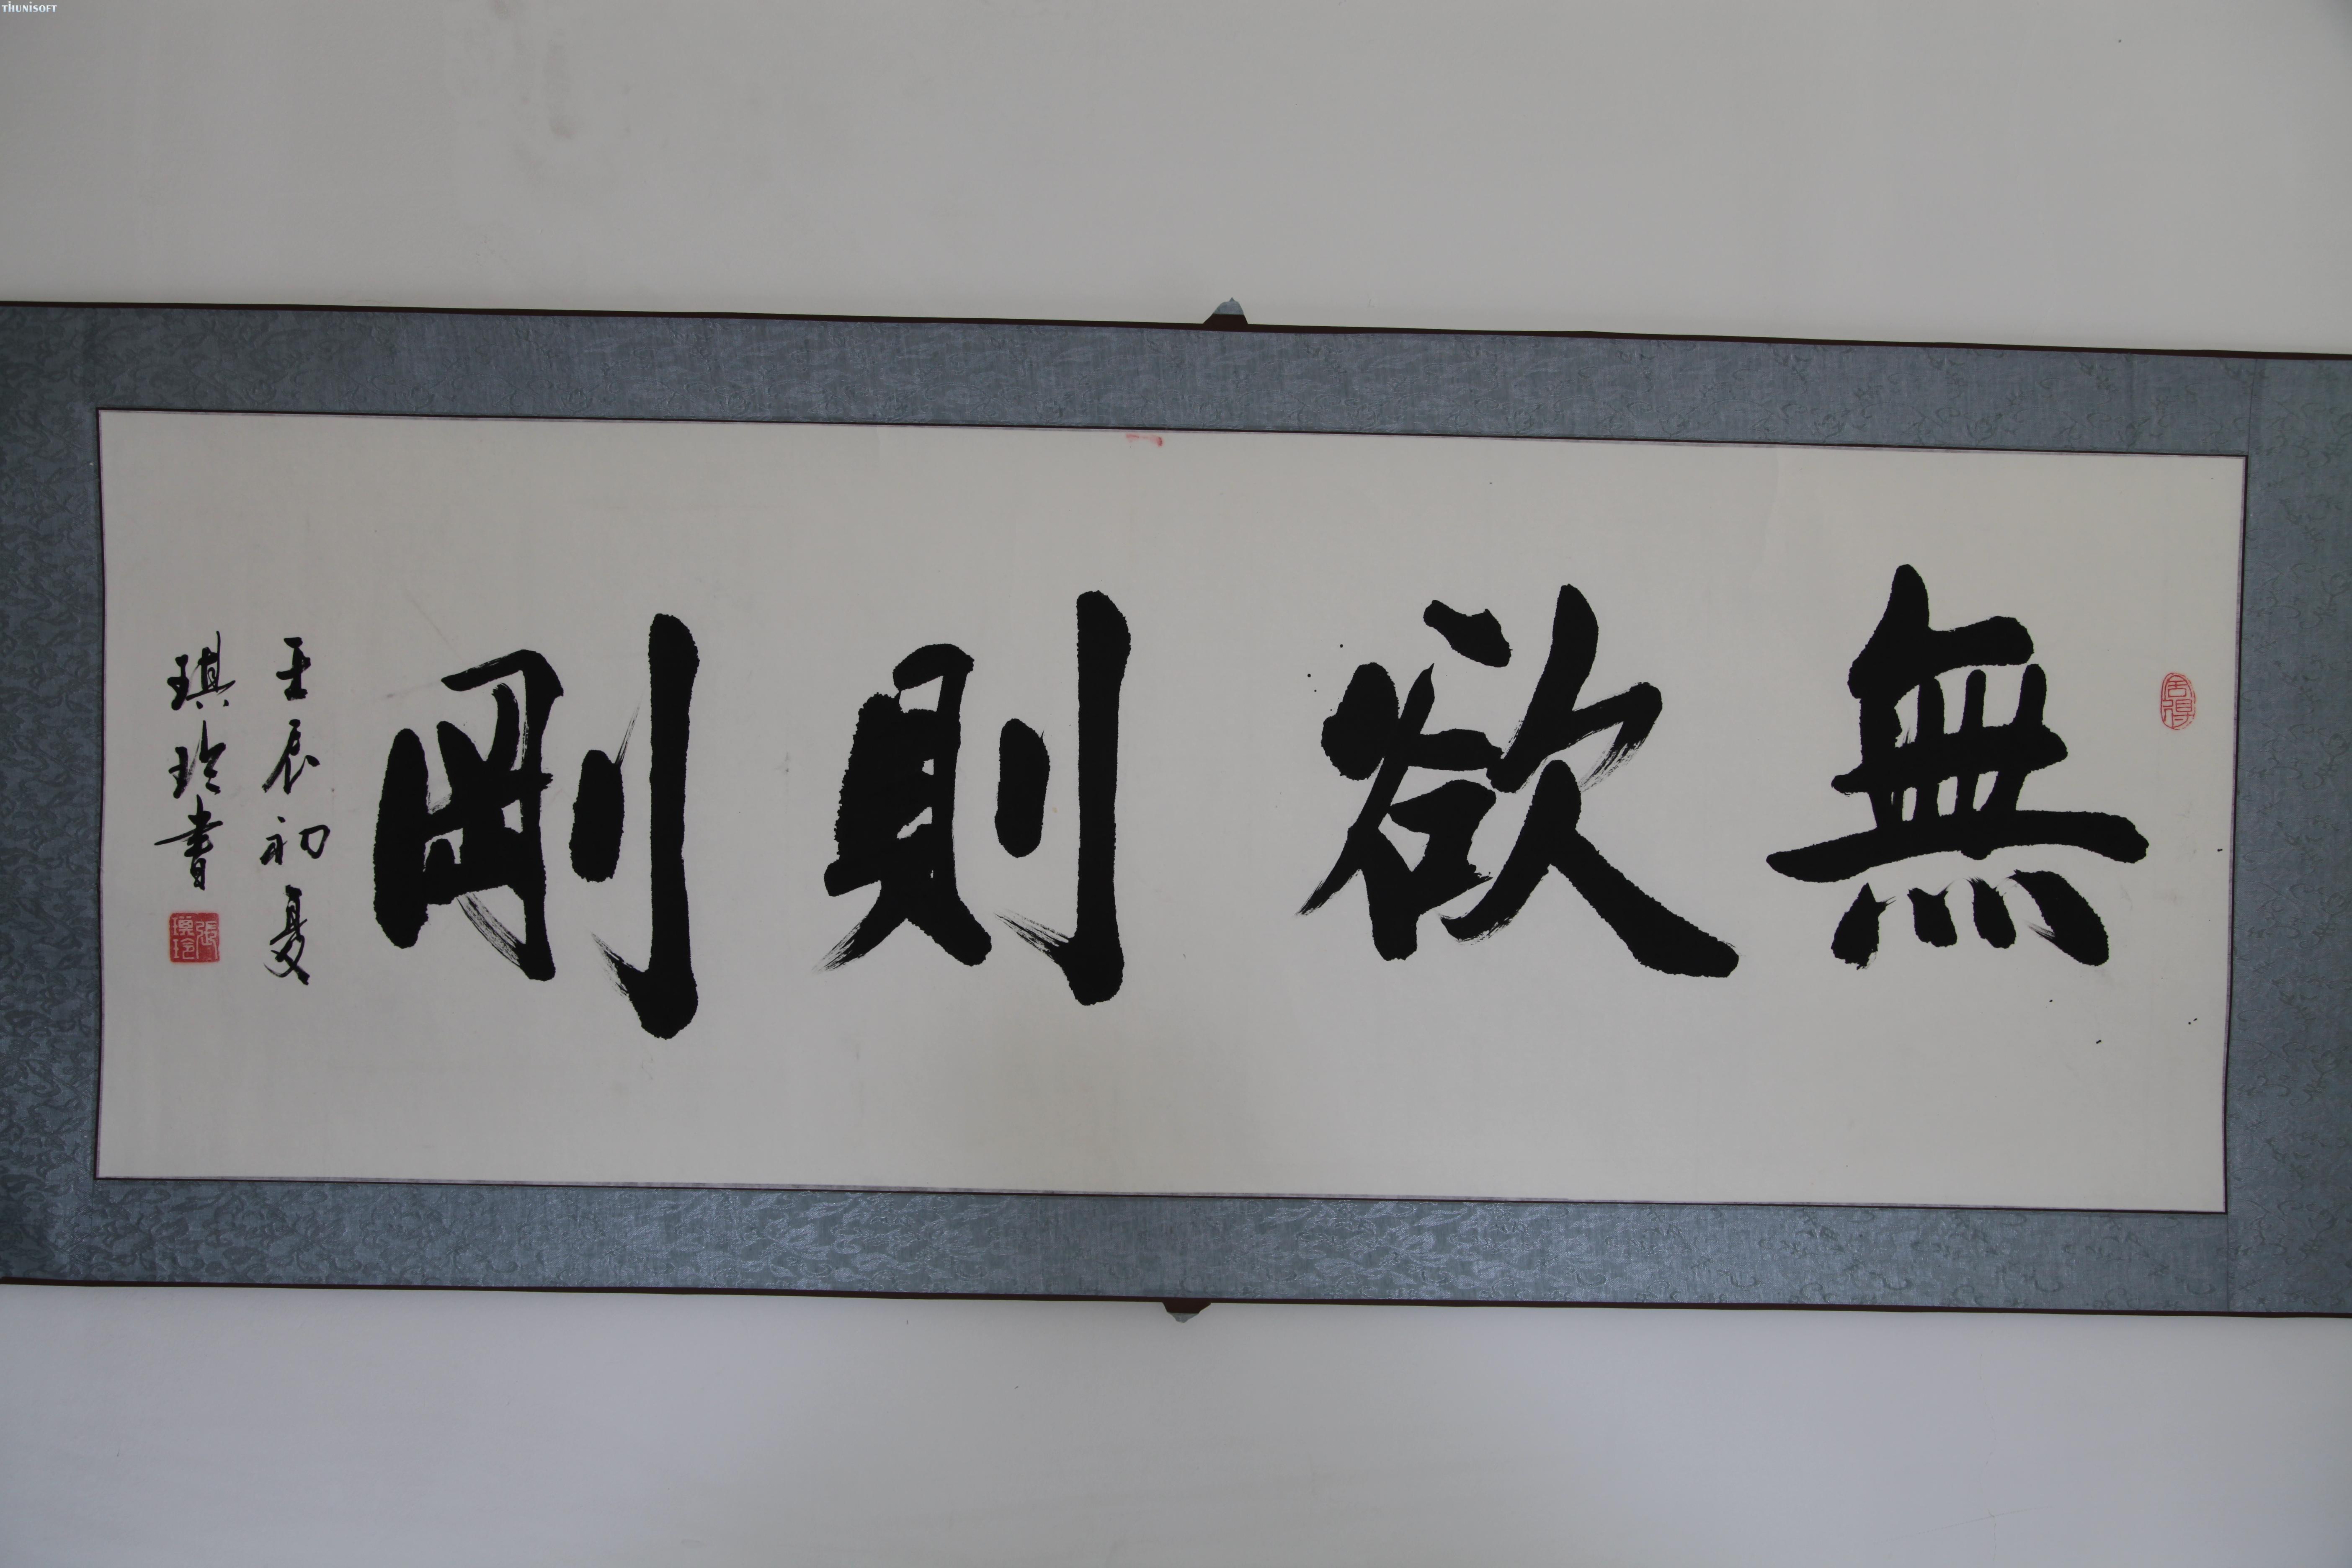 THUNISOFT
無欲則剛
壬辰初夏
琪玲書
張琪玲